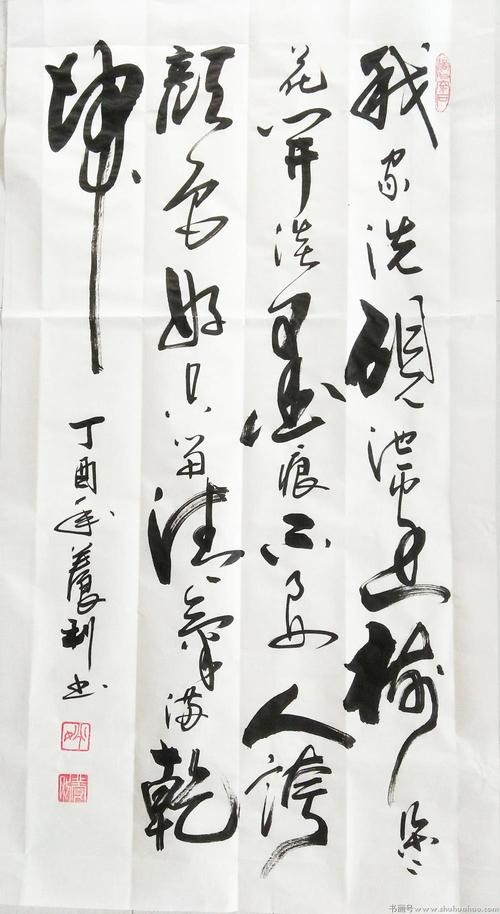 我家洗硯池邊樹朵々
花開淡墨痕不要人誇
顏色好只留清氣滿乾
坤
丁酉年養利书
书画号 www.shuhuahao.com